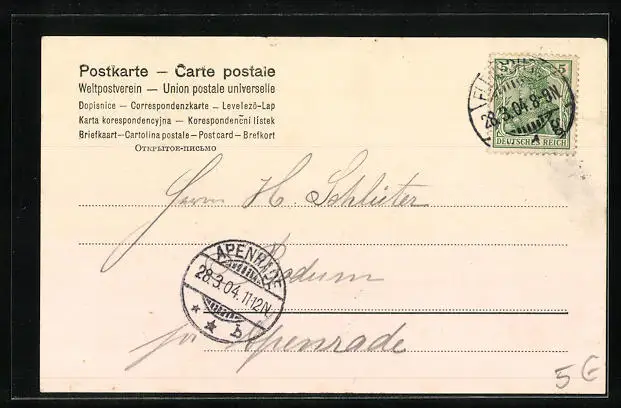 Postkarte — Carte postale
Weltpostverein — Union postale universelle
Dopisnice — Correspondenzkarte — Levelező-Lap
Karta korespondencyjna — Korespondenční lístek
Briefkaart — Cartolina postale — Postcard — Brefkort
Открытое-письмо
5 5
28.3.04.8-9N
DEUTSCHES REICH
Herrn H. Schlüter
APENRADE
28.3.04.11-12N
* * b
Rodum
pr Apenrade
5 €